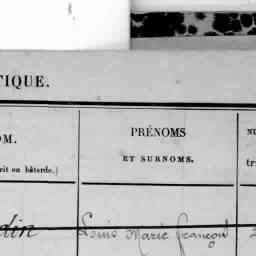 TIQUE.
OM.
PRÉNOMS
ET SURNOMS.
rit en bâtarde.)
din Louis Marie François